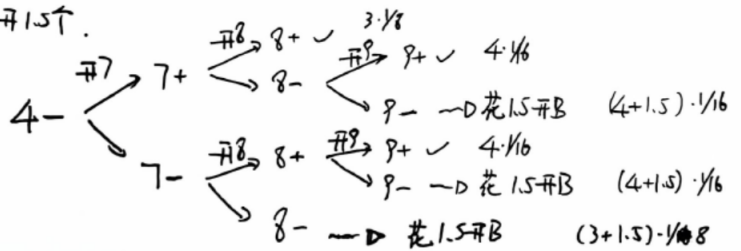 开1.5个.
3·1/8
开7 7+ 开8 8+ ✓
8- 开9 9+ ✓ 4·1/16
4-
9- → 花1.5开B (4+1.5)·1/16
7- 开8 8+ 开9 9+ ✓ 4·1/16
9- → 花1.5开B (4+1.5)·1/16
8- → 花1.5开B (3+1.5)·1/8